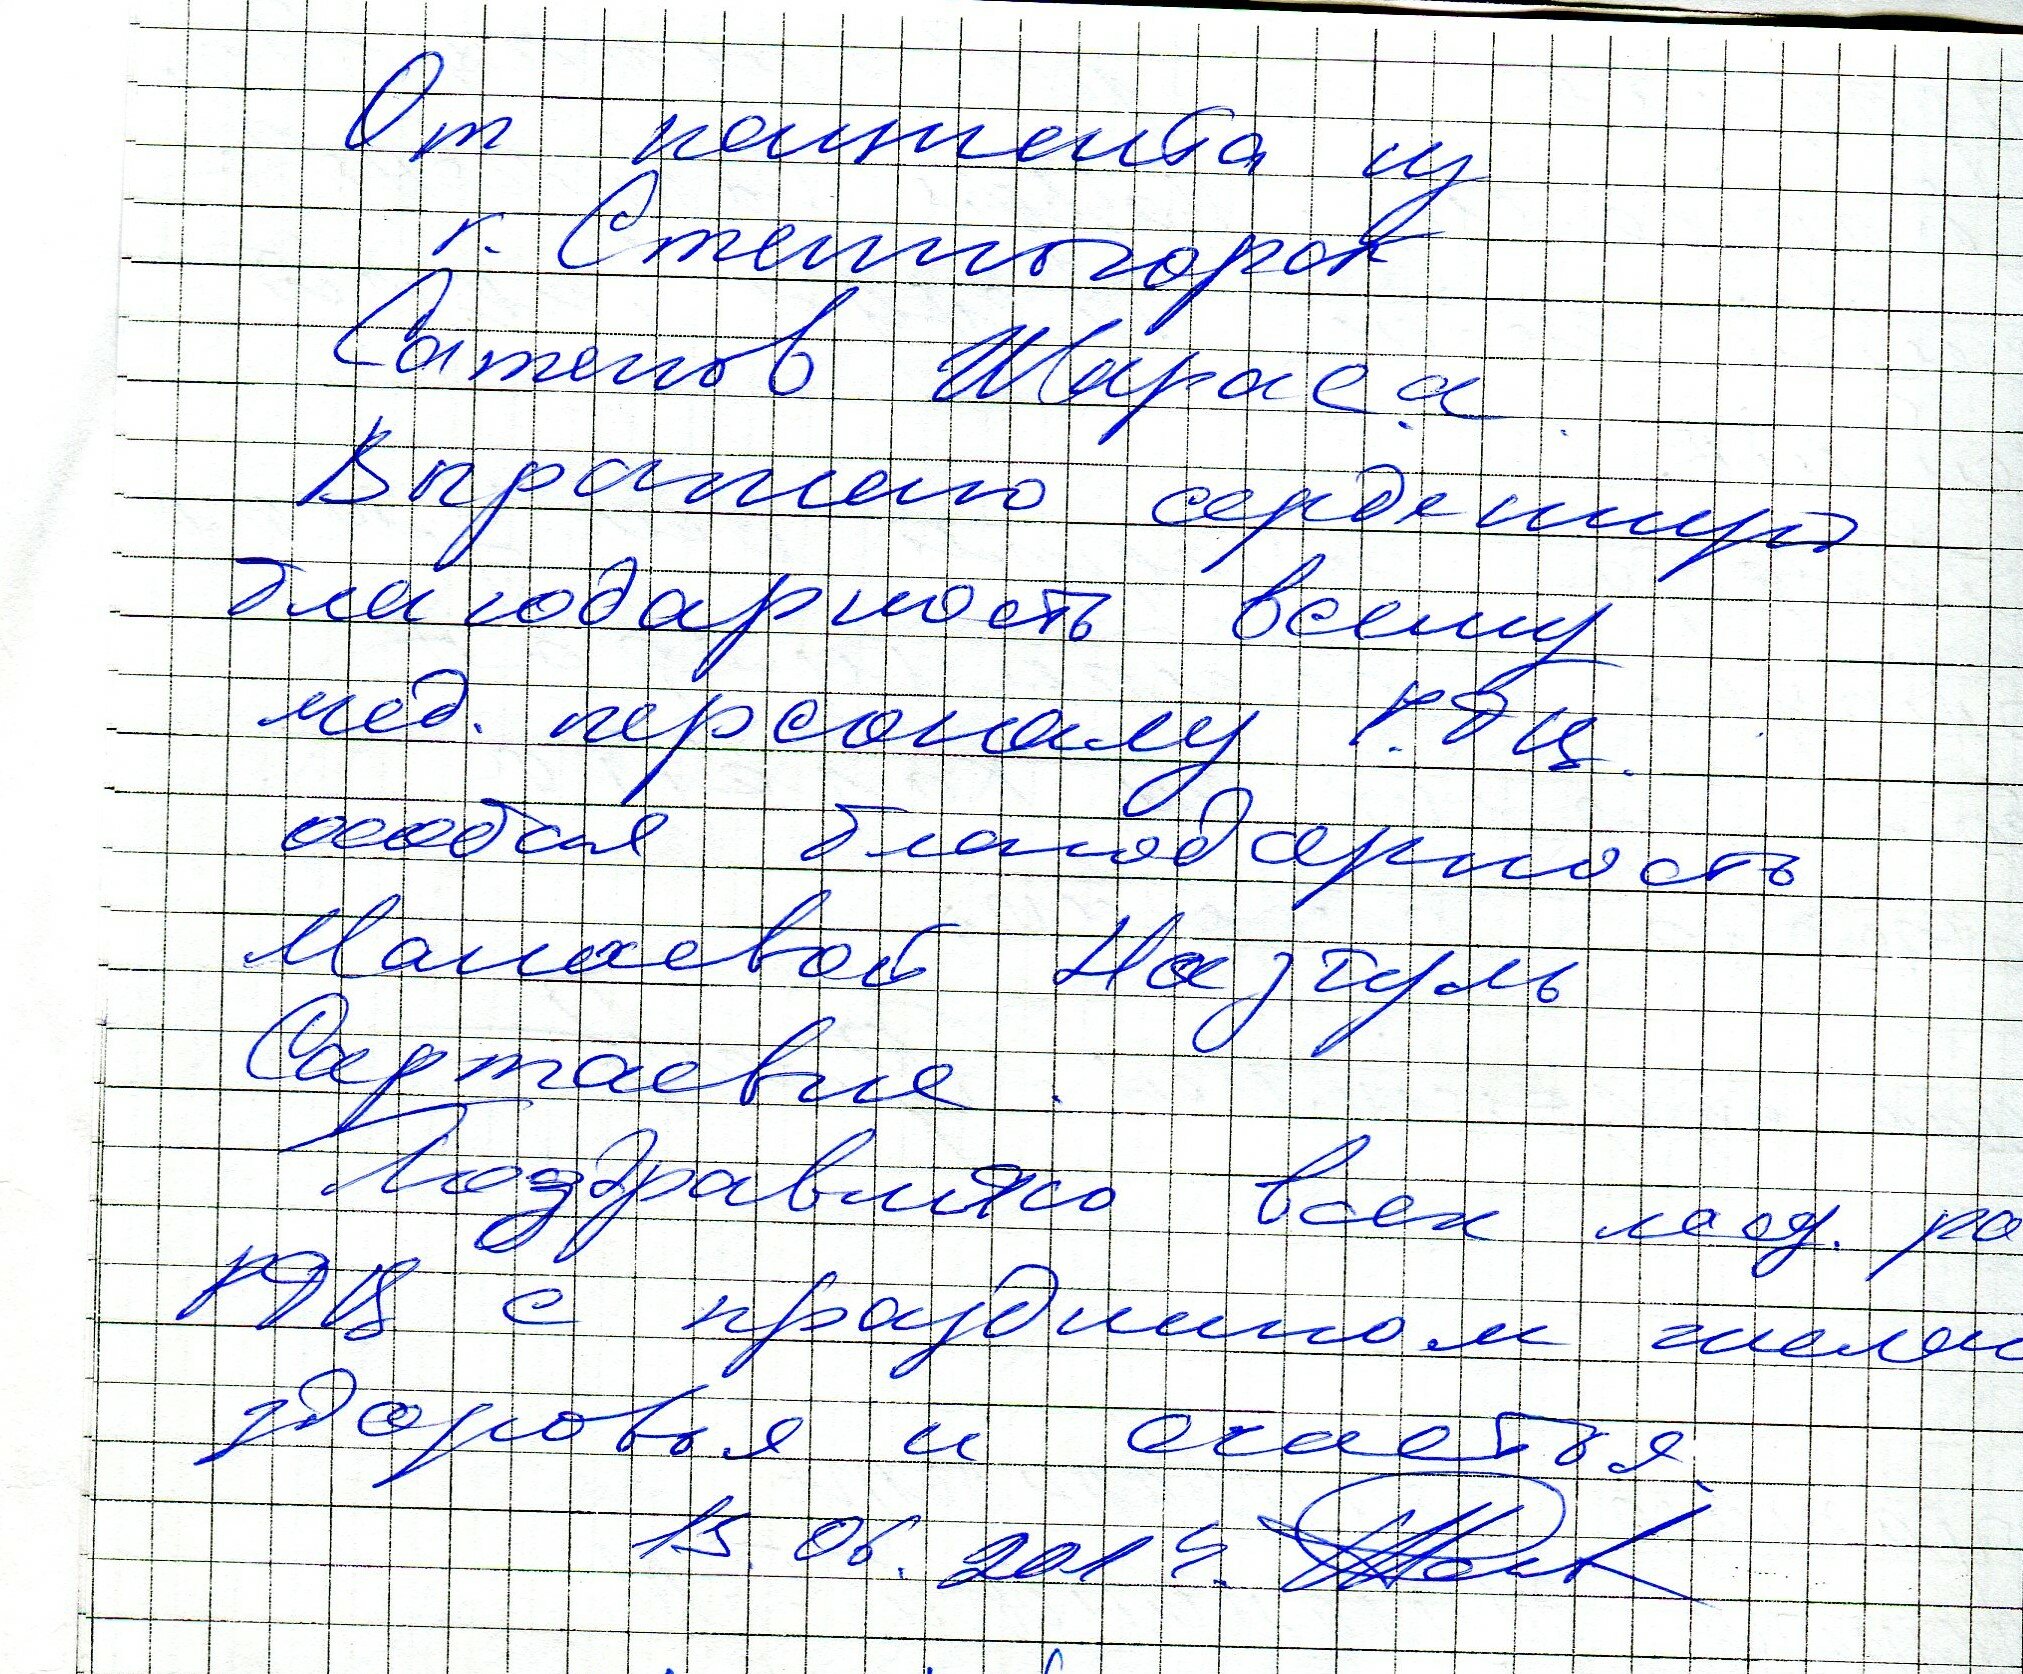 От пациента из
г. Степногорск
Сатенов Жараса.
Выражаю сердечную
благодарность всему
мед. персоналу К.Д.Ц.
особая благодарность
Манаевой Назгуль
Сартаевне.
Поздравляю всех мед. ра
КДЦ с праздником желаю
здоровья и счастья.
15.06.2014.